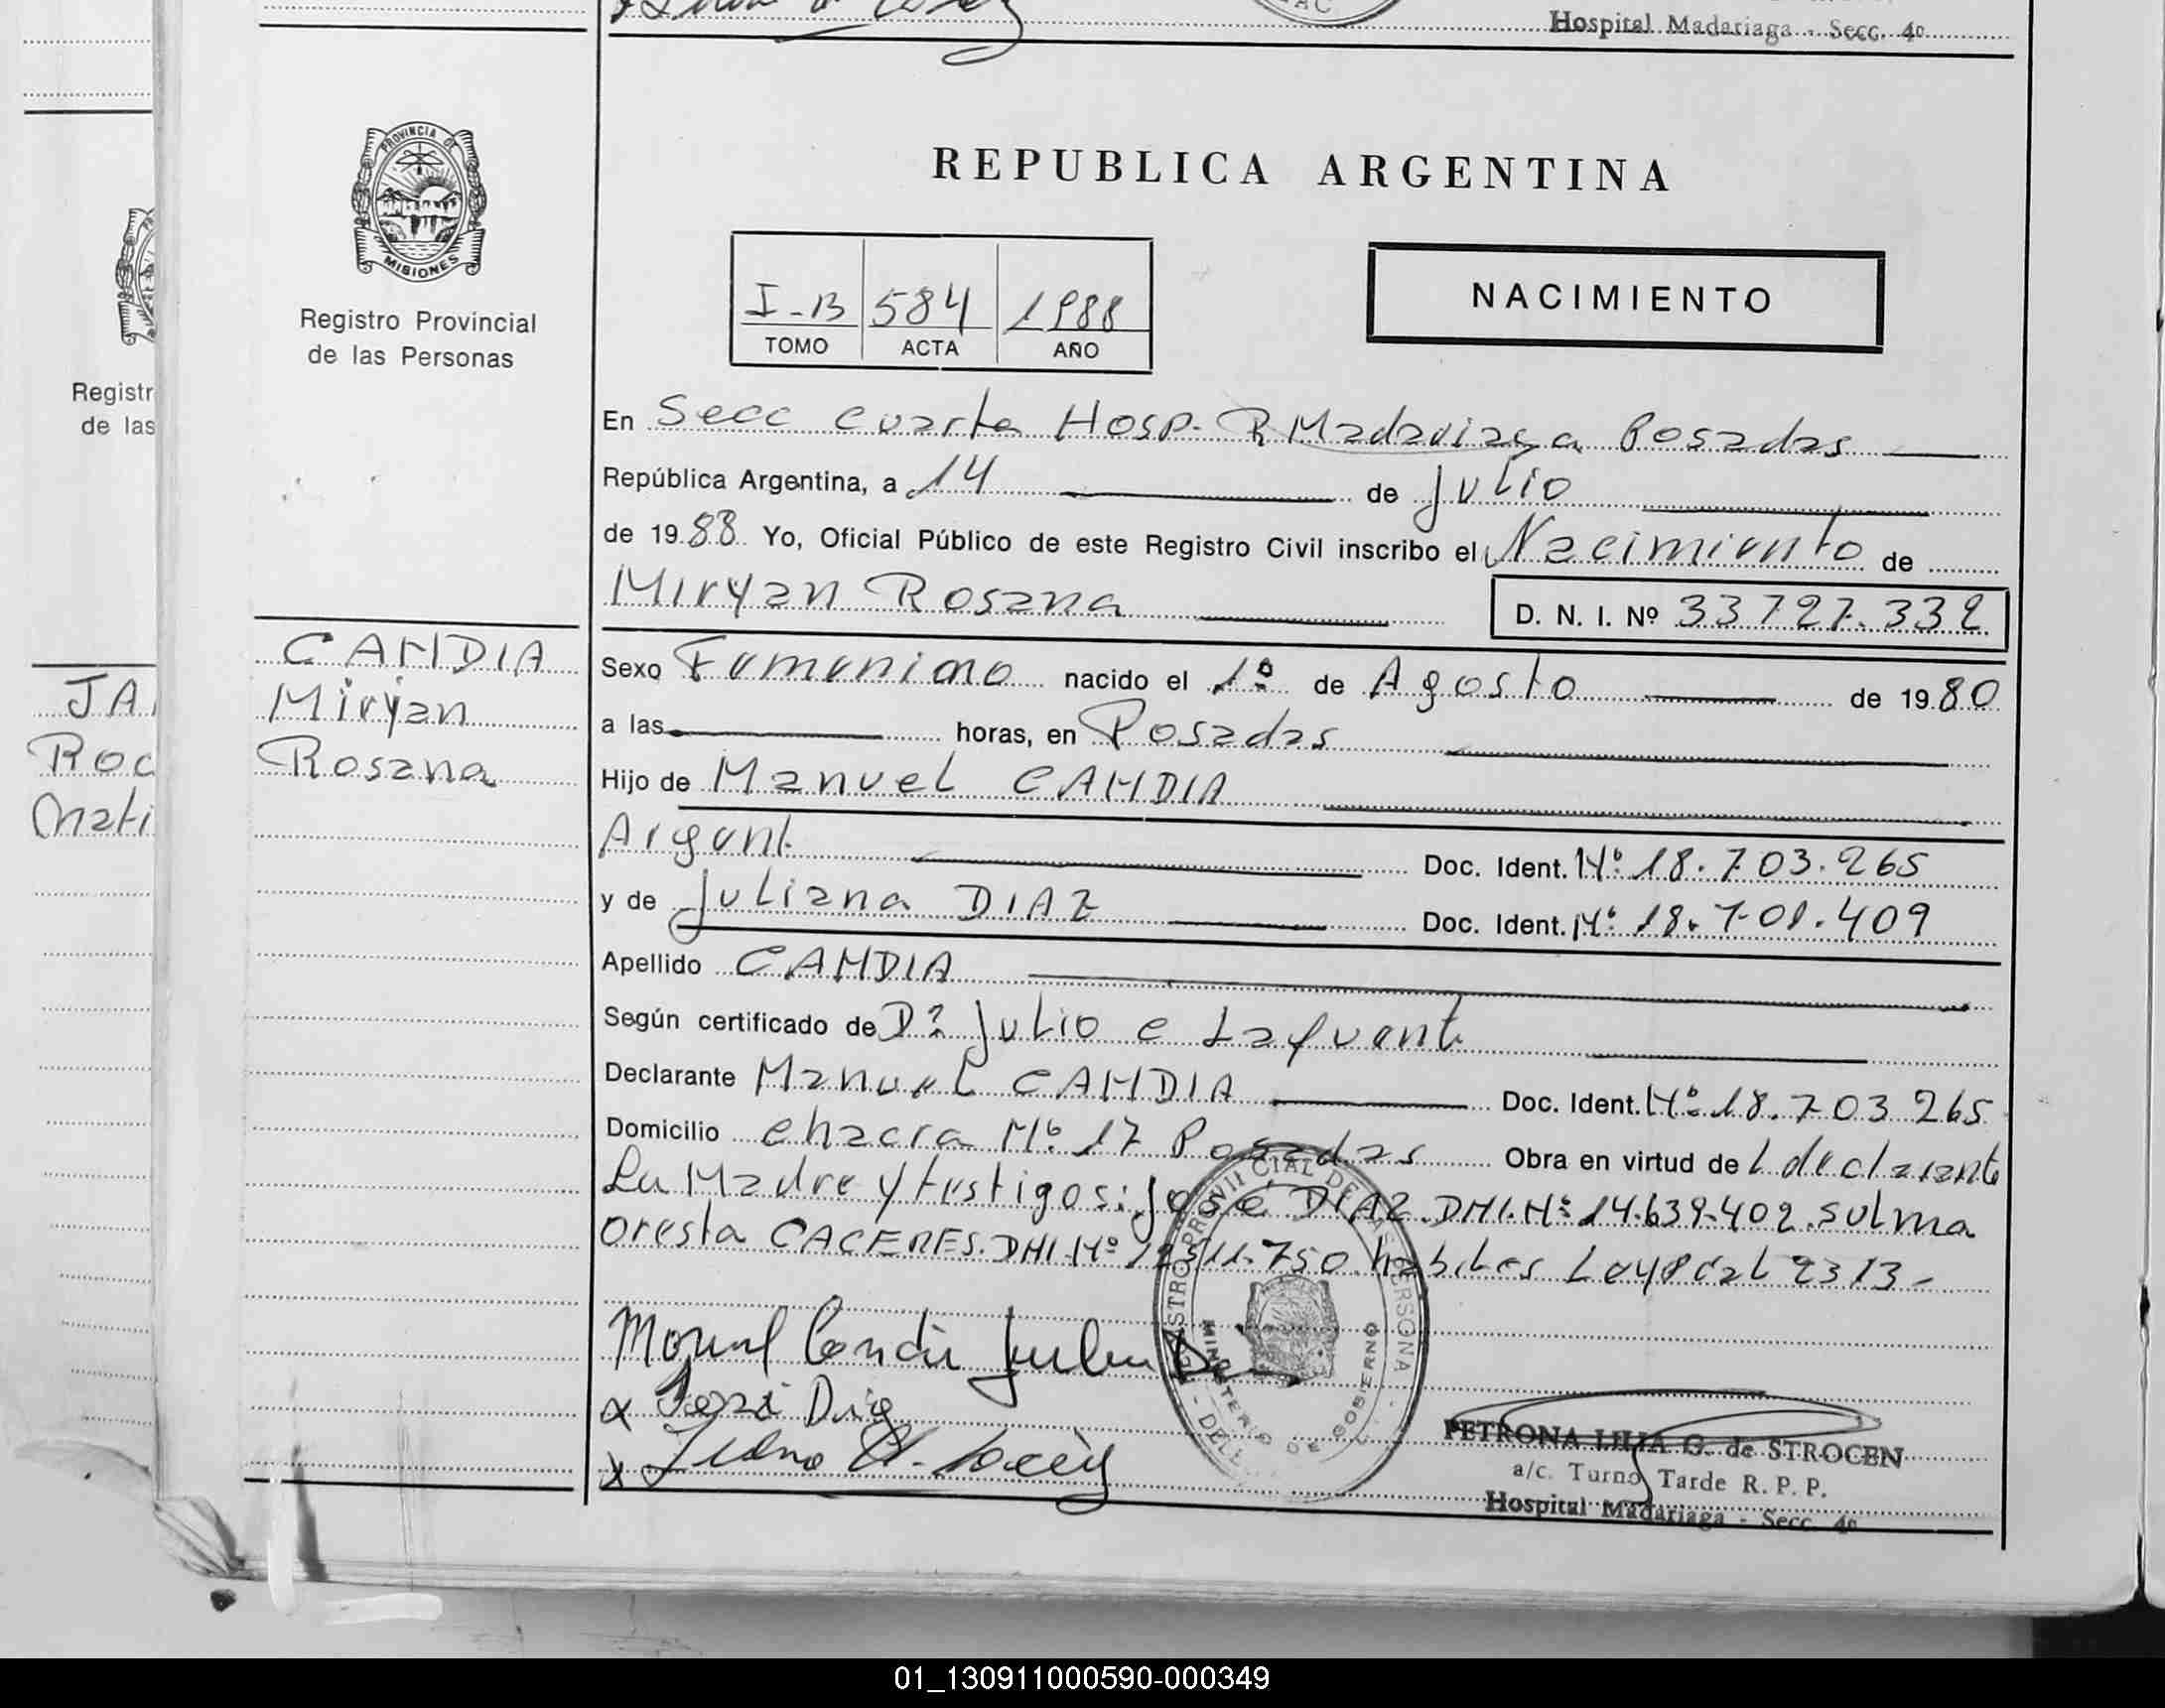 Hospital Madariaga - Secc. 4º
REPUBLICA ARGENTINA
PROVINCIA DE
MISIONES
Registro Provincial
de las Personas
I-B 584 1988
TOMO ACTA AÑO
NACIMIENTO
Registr
de las
En Secc Cuarta Hosp. R Madariaga Posadas
República Argentina, a 14 de Julio
de 1988 Yo, Oficial Público de este Registro Civil inscribo el Nacimiento de
Miryan Rosana D. N. I. Nº 33727.332
CANDIA
Miryan
Rosana
JA
Roc
Mati
Sexo Femenino nacido el 1º de Agosto de 1980
a las horas, en Posadas
Hijo de Manuel CANDIA
Argent. Doc. Ident. Nº 18.703.265
y de Juliana DIAZ Doc. Ident. Nº 18.701.409
Apellido CANDIA
Según certificado de Dº Julio C Lafuente
Declarante Manuel CANDIA Doc. Ident. Nº 18.703 265
Domicilio Chacra Nº 17 Posadas Obra en virtud de L declarante
La Madre y testigos: José DIAZ. DNI. Nº 14.639.402. Sulma
Oresta CACERES. DNI. Nº 12511.750. habiles Ley Pcial 2313-
REGISTRO PROVINCIAL DE LAS PERSONAS
MINISTERIO DE GOBIERNO
x José Diaz
PETRONA LILIA G. de STROCEN
a/c. Turno Tarde R. P. P.
Hospital Madariaga - Secc. 4º
01_130911000590-000349